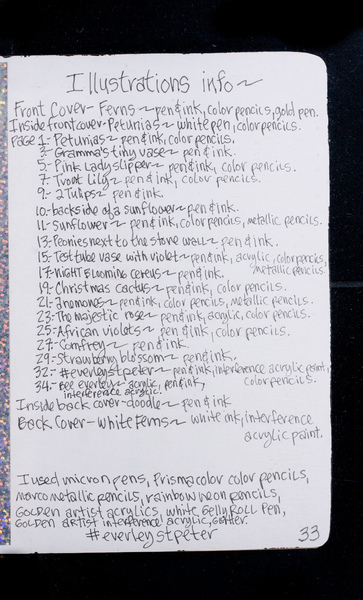 Illustrations info~
Front Cover- Ferns ~ pen & ink, color pencils, gold pen.
Inside front cover- Petunias ~ white pen, color pencils.
Page 1:- Petunias ~ pen & ink, color pencils.
3:- Gramma's tiny vase ~ pen & ink.
5:- Pink Lady slipper ~ pen & ink, color pencils.
7:- Trout Lily ~ pen & ink, color pencils.
9:- 2 Tulips ~ pen & ink.
10:- backside of a sunflower ~ pen & ink.
11:- sunflower ~ pen & ink, color pencils, metallic pencils.
13:- Peonies next to the stone wall ~ pen & ink.
15:- Test tube vase with violet ~ pen & ink, acrylic, color pencils,
metallic pencils
17:- Night Blooming cereus ~ pen & ink.
19:- Christmas Cactus ~ pen & ink, color pencils.
21:- Anomones ~ pen & ink, color pencils, metallic pencils.
23:- The majestic rose ~ pen & ink, acrylic, color pencils.
25:- African violets ~ pen & ink, color pencils.
27:- Comfrey ~ pen & ink.
29:- Strawberry blossom ~ pen & ink.
32:- #everleystpeter ~ pen & ink, interference acrylic paint,
color pencils.
34:- Bee everley ~ acrylic, pen & ink,
interference acrylic.
Inside back cover- doodle ~ pen & ink
Back Cover- White Ferns ~ white ink, interference
acrylic paint.
I used micron pens, Prismacolor color pencils,
marco metallic pencils, rainbow neon pencils,
Golden artist acrylics, white Gelly Roll Pen,
Golden artist interference acrylic, glitter.
#everleystpeter
33